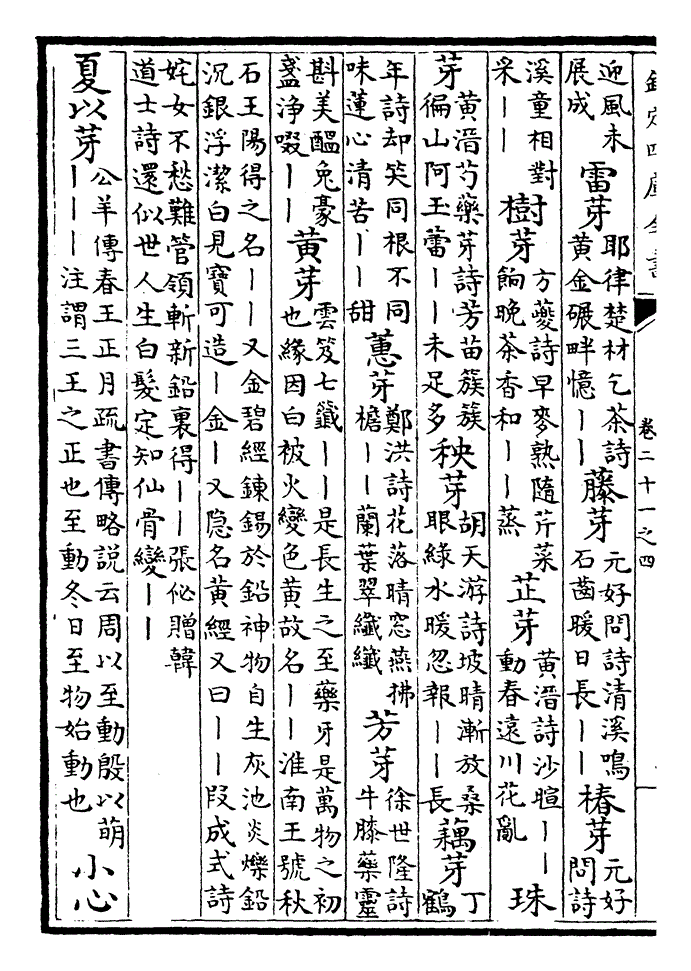 欽定四庫全書
卷二十一之四
迎風未
展成
雷芽
耶律楚材乞茶詩
黄金碾畔憶——
藤芽
元好問詩清溪鳴
石齒暖日長——
椿芽
元好
問詩
溪童相對
采——
樹芽
方夔詩早麥熟隨芹菜
餉晚茶香和——蒸
芷芽
黄溍詩沙暄——
動春遠川花亂
珠
芽
黄溍芍藥芽詩芳苗簇簇
徧山阿玉蕾——未足多
秧芽
胡天游詩坡晴漸放桑
眼綠水暖忽報——長
藕芽
丁
鶴
年詩却笑同根不同
味蓮心清苦——甜
蕙芽
鄭洪詩花落晴窓燕拂
檐——蘭葉翠纖纖
芳芽
徐世隆詩
牛膝藥靈
斟美醖兔豪
盞浄啜——
黄芽
雲笈七籖——是長生之至藥牙是萬物之初
也緣因白被火變色黄故名——淮南王號秋
石王陽得之名——又金碧經鍊錫於鉛神物自生灰池炎爍鉛
沉銀浮潔白見寶可造—金—又隐名黄經又曰——段成式詩
姹女不愁難管領斬新鉛裏得——張佖贈韓
道士詩還似世人生白髮定知仙骨變——
夏以芽
公羊傳春王正月疏書傳略説云周以至動殷以萌
———注謂三王之正也至動冬日至物始動也
小心